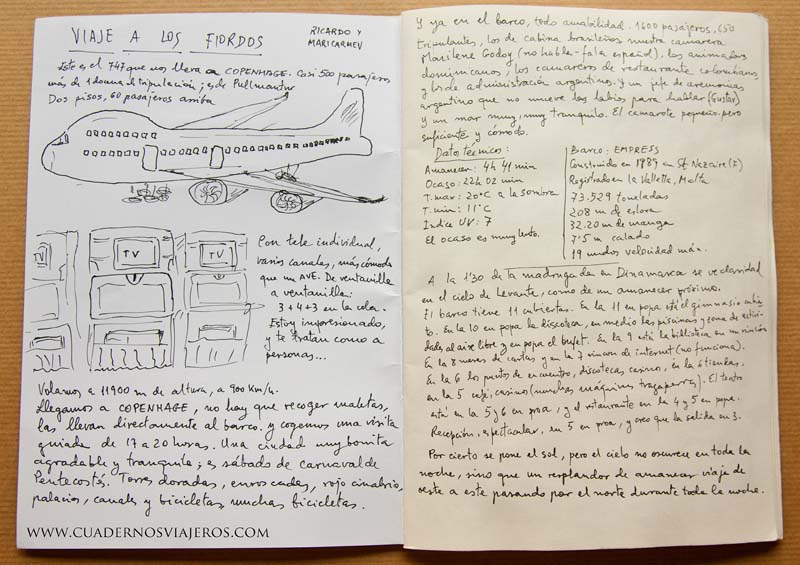 VIAJE A LOS FIORDOS
RICARDO Y
MARICARMEN
Este es el 747 que nos lleva a COPENHAGE. Casi 500 pasajeros
más de 1 douna de tripulación; es de Pullmantur
Dos pisos, 60 pasajeros arriba
TV
TV
TV
Con tele individual,
varios canales, más cómodo
que un AVE. De ventanilla
a ventanilla:
3+4+3 en la cola.
Estoy impresionado,
y te tratan como a
personas...
Volamos a 11900 m de altura, a 900 km/h.
Llegamos a COPENHAGE, no hay que recoger maletas,
las llevan directamente al barco. y cogemos una visita
guiada de 17 a 20 horas. Una ciudad muy bonita
agradable y tranquila; es sábado de carnaval de
Pentecostés. Torres doradas, enroscadas, rojo cinabrio,
palacios, canales y bicicletas, muchas bicicletas.
WWW.CUADERNOSVIAJEROS.COM
Y ya en el barco, todo amabilidad. 1600 pasajeros, 650
tripulantes, los de cabina brasileños nuestra camarera
Marilene Godoy (no habla-fala español), los animadores
dominicanos, los camareros de restaurante colombianos,
y los de administración argentinos. Y un jefe de ceremonias
argentino que no mueve los labios para hablar (Gustav)
Y un mar muy, muy tranquilo. El camarote pequeño pero
suficiente y cómodo.
Datos técnicos:
Amanecer: 4h 41 min
Ocaso: 22h 02 min
T. max: 20°C a la sombra
T. min: 11°C
Indice UV: 7
El ocaso es muy lento.
Barco: EMPRESS
Construido en 1989 en St Nezaire (F)
Registrado en la Valletta, Malta
73.529 toneladas
208 m de eslora
32.20 m de manga
7'5 m calado
19 nudos velocidad máx.
A la 1'30 de la madrugada en Dinamarca se ve claridad
en el cielo de Levante, como de un amanecer próximo.
El barco tiene 11 cubiertas. En la 11 en popa está el gimnasio
En la 10 en popa la discoteca, en medio las piscinas y zona de activi-
dades al aire libre y en popa el bufet. En la 9 está la biblioteca en un rincón
En la 8 mesas de cartas y en la 7 rincon de internet (no funciona).
En la 6 los puntos de encuentro, discotecas, casino, en la 6 tiendas,
en la 5 café, casinos (muchas máquinas tragaperras). El teatro
está en la 5 y 6 en proa, y el restaurante en la 4 y 5 en popa.
Recepción, espectacular, en 5 en proa, y creo que la salida en 3.
Por cierto se pone el sol, pero el cielo no oscurece en toda la
noche, sino que un resplandor de amanecer viaja de
oeste a este pasando por el norte durante toda la noche.